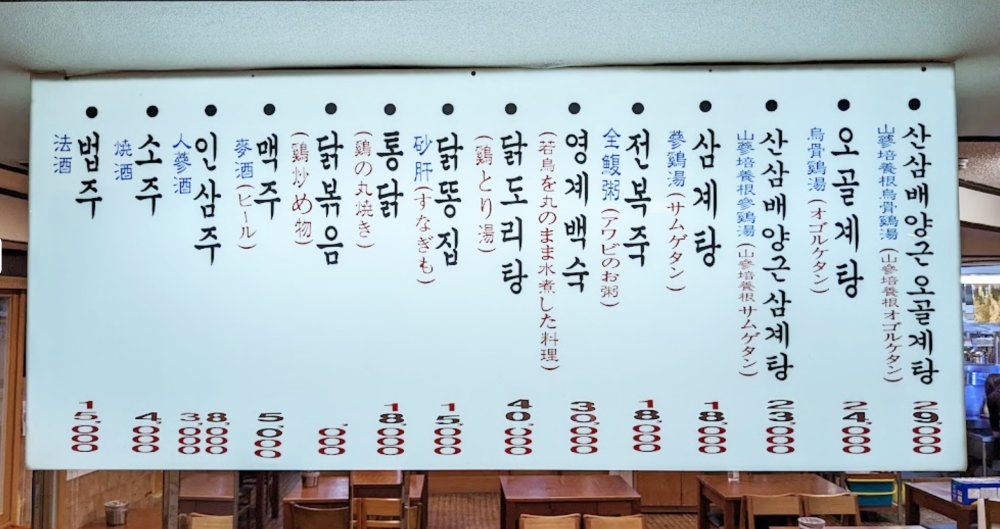 산삼배양근오골계탕
山蔘培養根烏骨鷄湯 (山參培養根オゴルケタン)
29,000
오골계탕
烏骨鷄湯 (オゴルケタン)
24,000
산삼배양근삼계탕
山蔘培養根參鷄湯 (山參培養根サムゲタン)
23,000
삼계탕
蔘鷄湯 (サムゲタン)
18,000
전복죽
全鰒粥 (アワビのお粥)
18,000
영계백숙
(若鳥を丸のまま水煮した料理)
30,000
닭도리탕
(鷄とり湯)
40,000
닭똥집
砂肝 (すなぎも)
15,000
통닭
(鷄の丸焼き)
18,000
닭볶음
(鷄炒め物)
맥주
麥酒 (ビール)
5,000
인삼주
人蔘酒
8,000
3,000
소주
燒酒
4,000
법주
法酒
15,000